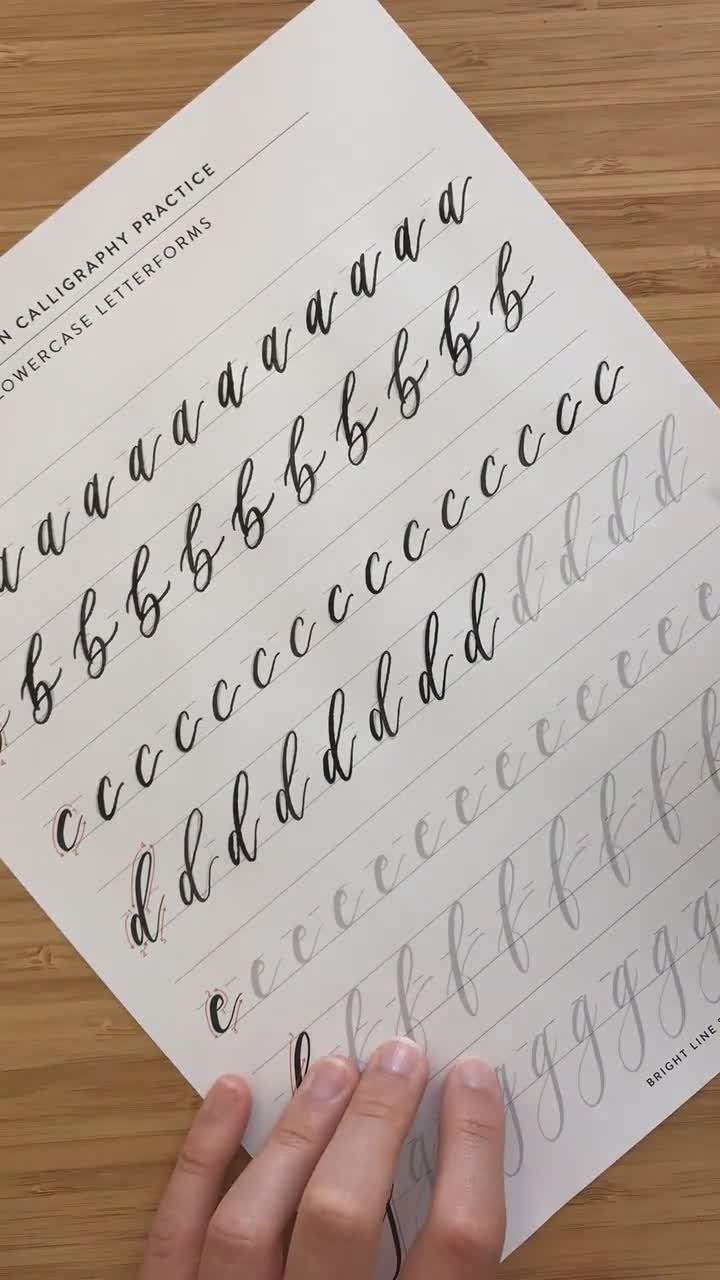 CALLIGRAPHY PRACTICE
LOWERCASE LETTERFORMS
a a a a a a a a a a a
b b b b b b b b b b
c c c c c c c c c c c c c c c
d d d d d d d d d d d d
e e e e e e e e e e e e e
f f f f f f f f f
g g g g g g g
BRIGHT LINE